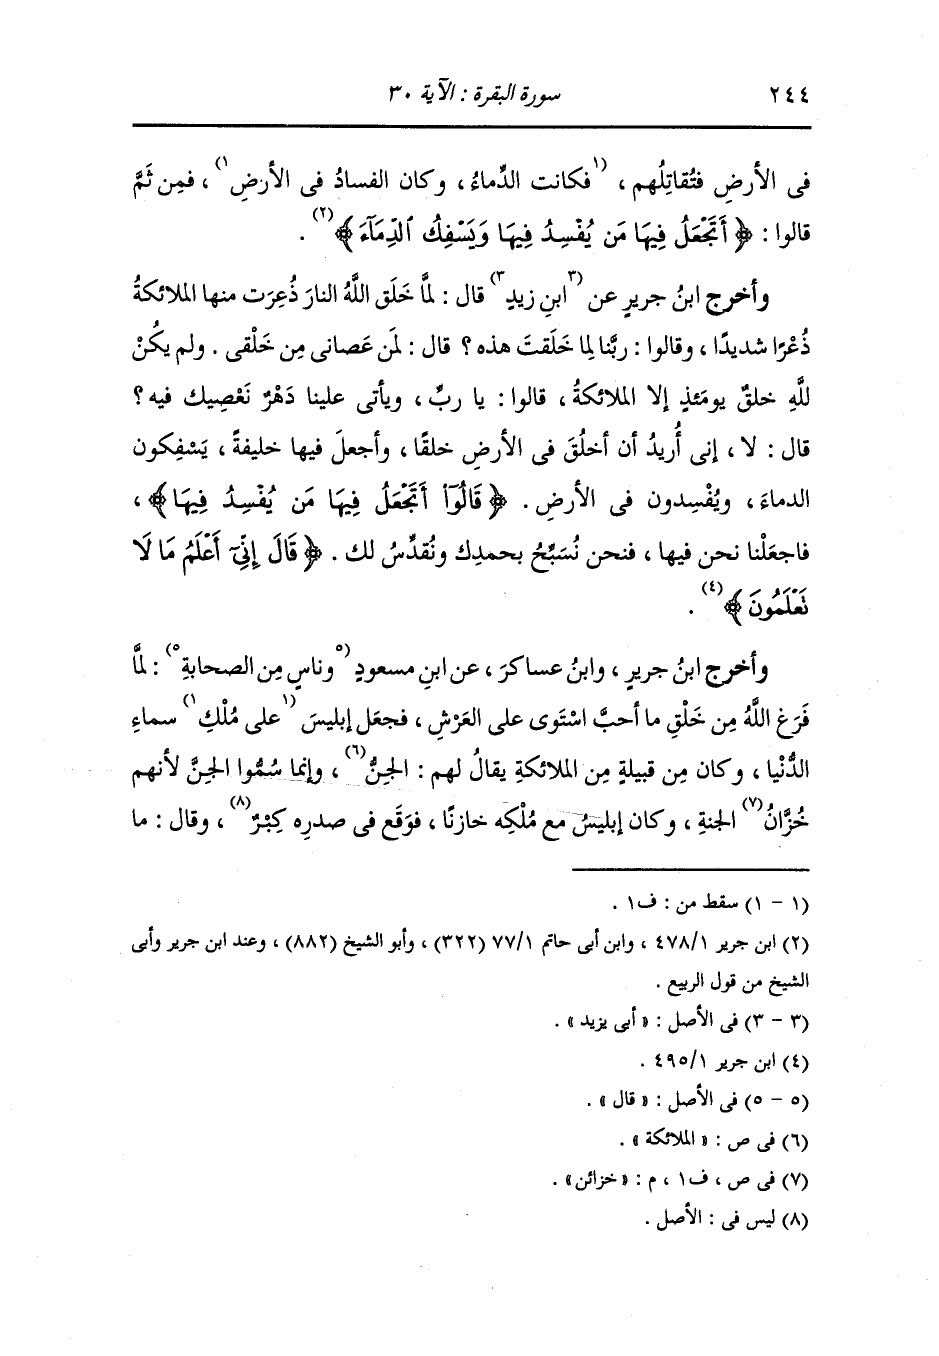 ٢٤٤ سورة البقرة : الآية ٣٠
فى الأرضِ فتُقاتِلُهم ، (١فكانت الدِّماءُ ، وكان الفسادُ فى الأرضِ١) ، فمِن ثَمَّ
قالوا : ﴿ أَتَجْعَلُ فِيهَا مَن يُفْسِدُ فِيهَا وَيَسْفِكُ ٱلدِّمَآءَ ﴾(٢) .
وأخرج ابنُ جريرٍ عن (٣ابنِ زيدٍ٣) قال : لمَّا خَلَق اللَّهُ النارَ ذُعِرَت منها الملائكةُ
ذُعْرًا شديدًا ، وقالوا : ربَّنا لِما خَلَقتَ هذه ؟ قال : لمَن عَصانى مِن خَلْقى . ولم يكُنْ
للَّهِ خلقٌ يومَئذٍ إلا الملائكةُ ، قالوا : يا ربِّ ، ويأتى علينا دَهْرٌ نَعْصِيك فيه ؟
قال : لا ، إنى أُريدُ أن أخلُقَ فى الأرضِ خلقًا ، وأجعلَ فيها خليفةً ، يَسْفِكون
الدماءَ ، ويُفْسِدون فى الأرضِ . ﴿ قَالُوٓاْ أَتَجْعَلُ فِيهَا مَن يُفْسِدُ فِيهَا ﴾ ،
فاجعَلْنا نحن فيها ، فنحن نُسَبِّحُ بحمدِك ونُقدِّسُ لك . ﴿ قَالَ إِنِّىٓ أَعْلَمُ مَا لَا
تَعْلَمُونَ ﴾(٤) .
وأخرج ابنُ جريرٍ ، وابنُ عساكرَ ، عن ابنِ مسعودٍ (٥وناسٍ مِن الصحابةِ٥) : لمَّا
فَرَغ اللَّهُ مِن خَلْقِ ما أحبَّ اسْتَوى على العَرْشِ ، فجعَل إبليسَ (١على مُلْكِ١) سماءِ
الدُّنْيا ، وكان مِن قبيلةٍ مِن الملائكةِ يقالُ لهم : الجنُّ(٦) ، وإنما سُمُّوا الجنَّ لأنهم
خُزَّانُ(٧) الجنةِ ، وكان إبليسُ مع مُلْكِه خازنًا ، فوَقَع فى صدرِه كِبْرٌ(٨) ، وقال : ما
(١ - ١) سقط من : ف١ .
(٢) ابن جرير ٤٧٨/١ ، وابن أبى حاتم ٧٧/١ (٣٢٢) ، وأبو الشيخ (٨٨٢) ، وعند ابن جرير وأبى
الشيخ من قول الربيع .
(٣ - ٣) فى الأصل : « أبى يزيد » .
(٤) ابن جرير ٤٩٥/١ .
(٥ - ٥) فى الأصل : « قال » .
(٦) فى ص : « الملائكة » .
(٧) فى ص ، ف١ ، م : « خزائن» .
(٨) ليس فى : الأصل .